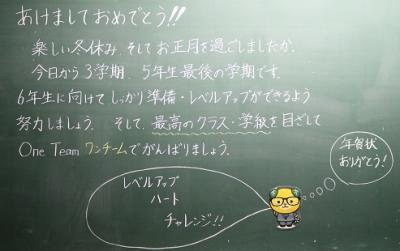 あけましておめでとう!!
楽しい冬休み、そしてお正月を過ごしましたか。
今日から3学期、5年生最後の学期です。
6年生に向けてしっかり準備・レベルアップができるよう
努力しましょう。そして、最高のクラス・学級を目ざして
One Team ワンチームでがんばりましょう。
年賀状
ありがとう!
レベルアップ
ハート
チャレンジ!!